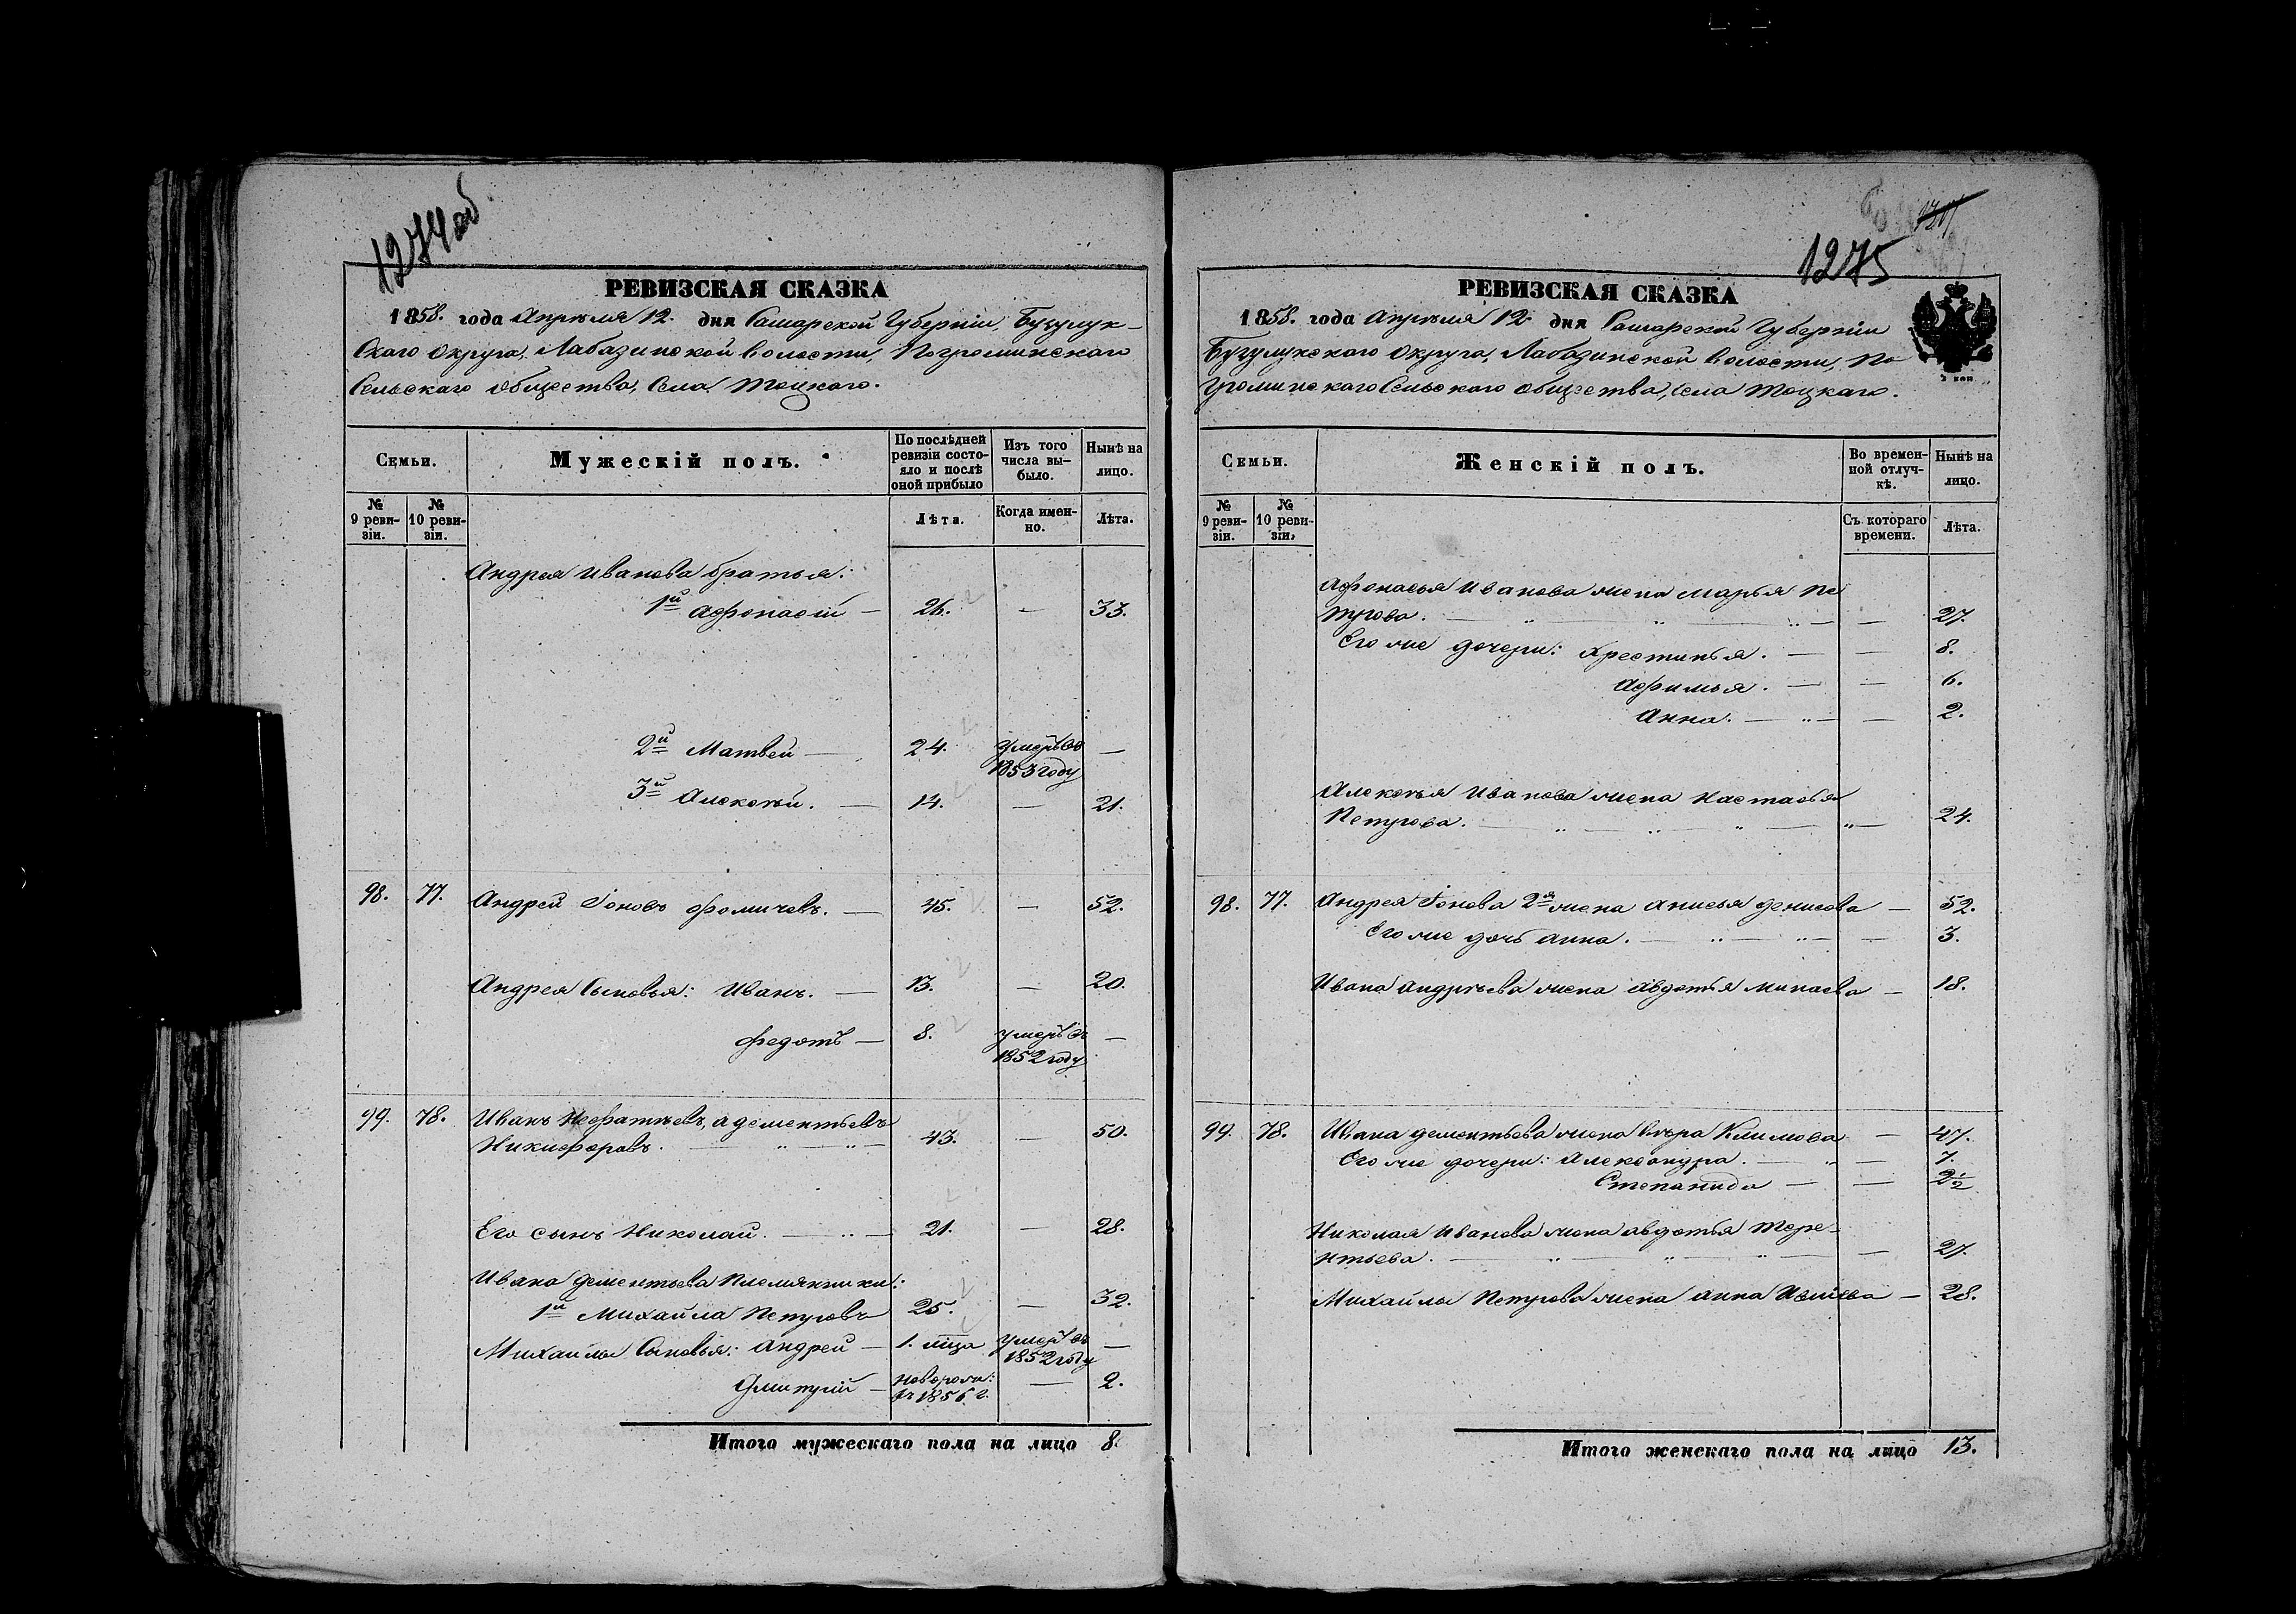 1274 об
РЕВИЗСКАЯ СКАЗКА
1858. года Апрѣля 12. дня Самарской Губерніи, Бузулук-
скаго Округа, Лабазинской волости, Погроминскаго
Сельскаго общества, Села Тоцкаго.
Семьи.
Мужескій полъ.
По послѣдней ревизіи состо-
яло и послѣ оной прибыло
Изъ того числа вы-
было.
Нынѣ на лицо.
№ 9 реви-
зіи.
№ 10 реви-
зіи.
Лѣта.
Когда имен-
но.
Лѣта.
Андрея Иванова братья:
1й Афонасій — 26. — 33.
2й Матвей — 24. умеръ въ —
1853 году
3й Алексѣй. — 14. — 21.
98. 77. Андрей Іоновъ Фомичевъ. — 45. — 52.
Андрея Сыновья: Иванъ. — 13. — 20.
Федотъ — 8. умеръ въ —
1852 году
99. 78. Иванъ Нефатьевъ, а дементьевъ
Никифоровъ. — 43. — 50.
Его сынъ Николай. — 21. — 28.
Ивана дементьева племянники:
1й Михайла Петровъ 25. — 32.
Михайлы Сыновья: Андрей — 1. мца умеръ въ —
1852 году
Дмитрій — новорож: — 2.
въ 1856 г.
Итого мужескаго пола на лицо 8.
1275
РЕВИЗСКАЯ СКАЗКА
1858. года Апрѣля 12. дня Самарской Губерніи
Бузулукскаго Округа, Лабазинской волости, По
громинскаго Сельскаго общества, села Тоцкаго.
2 коп
Семьи.
Женскій полъ.
Во времен-
ной отлуч-
кѣ.
Нынѣ на лицо.
№ 9 реви-
зіи.
№ 10 реви-
зіи.
Съ котораго времени.
Лѣта.
Афонасья Иванова жена Марья Пе
трова. — — 27.
Его же дочери: Хрестинья. — — 8.
Афимья. — — 6.
Анна. — — 2.
Алексѣя Иванова жена Настасья
Петрова. — — 24.
98. 77. Андрея Іонова 2я жена Анисья денисова — 52.
Его же дочь анна. — — 3.
Ивана Андрѣева жена Авдотья Минаева — 18.
99. 78. Ивана дементьева жена Вѣра Климова — 47.
Его же дочери: Александра. — — 7.
Степанида — — 2½
Николая Иванова жена авдотья Тере-
нтьева. — — 27.
Михайлы Петрова жена анна — 28.
Итого женскаго пола на лицо 13.